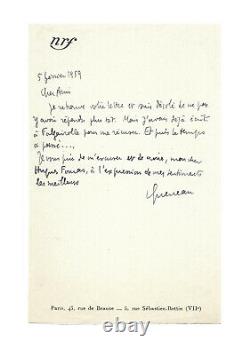 nrf
5 janvier 1959
Cher Ami
Je retrouve votre lettre et suis désolé de ne pas
y avoir répondu plus tôt. Mais j'avais déjà écrit
à pour me récuser. Et puis le temps
a passé....
Je vous prie de m'excuser et de croire, mon cher
Hugues Fouras, à l'expression de mes sentiments
les meilleurs
Queneau
Paris, 43, rue de Beaune — 5, rue Sébastien-Bottin (VIIe)